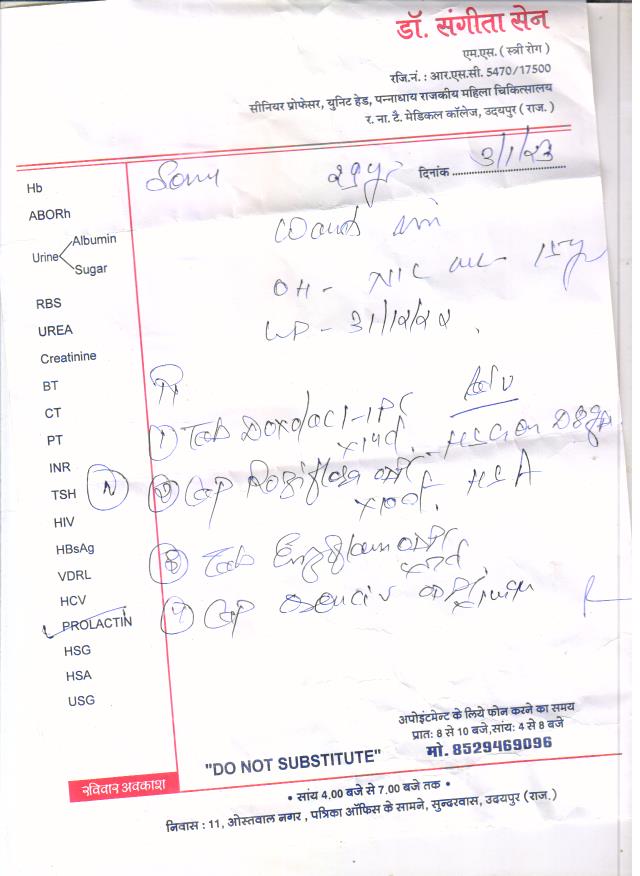 डॉ. संगीता सेन
एम.एस. ( स्त्री रोग )
रजि.नं. : आर.एस.सी. 5470/17500
सीनियर प्रोफेसर, युनिट हेड, पन्नाधाय राजकीय महिला चिकित्सालय
र. ना. टै. मेडिकल कॉलेज, उदयपुर ( राज. )
29 yr दिनांक 3/1/23
Hb
ABORh
Urine Albumin
Sugar
RBS
UREA
Creatinine
BT
CT
PT
INR
TSH
HIV
HBsAg
VDRL
HCV
PROLACTIN
HSG
HSA
USG
OH -
LMP - 31/12/22
Adv
1 Tab
HSG on D8
2 Cap
HSA
N
3 Tab
4 Cap
अपोइंटमेन्ट के लिये फोन करने का समय
प्रात: 8 से 10 बजे,सांय: 4 से 8 बजे
मो. 8529469096
"DO NOT SUBSTITUTE"
रविवार अवकाश
• सांय 4.00 बजे से 7.00 बजे तक •
निवास : 11, ओस्तवाल नगर , पत्रिका ऑफिस के सामने, सुन्दरवास, उदयपुर (राज.)